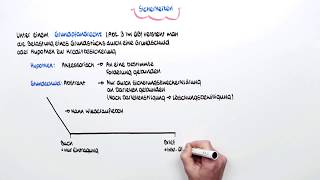 Sicherheiten
Unter einem Grundpfandrecht (Abt. 3 im GB) versteht man
die Belastung eines Grundstücks durch eine Grundschuld
oder Hypothek zur Kreditbesicherung
Hypothek: Akzessorisch → An eine bestimmte
Forderung gebunden
Grundschuld: Abstrakt → Nur durch Sicherungszweckerklärung
an Darlehen gebunden
(Nach Darlehenstilgung → Löschungsbewilligung)
→ Kann wiederaufleben
Buch
+Nur Eintragung
Brief